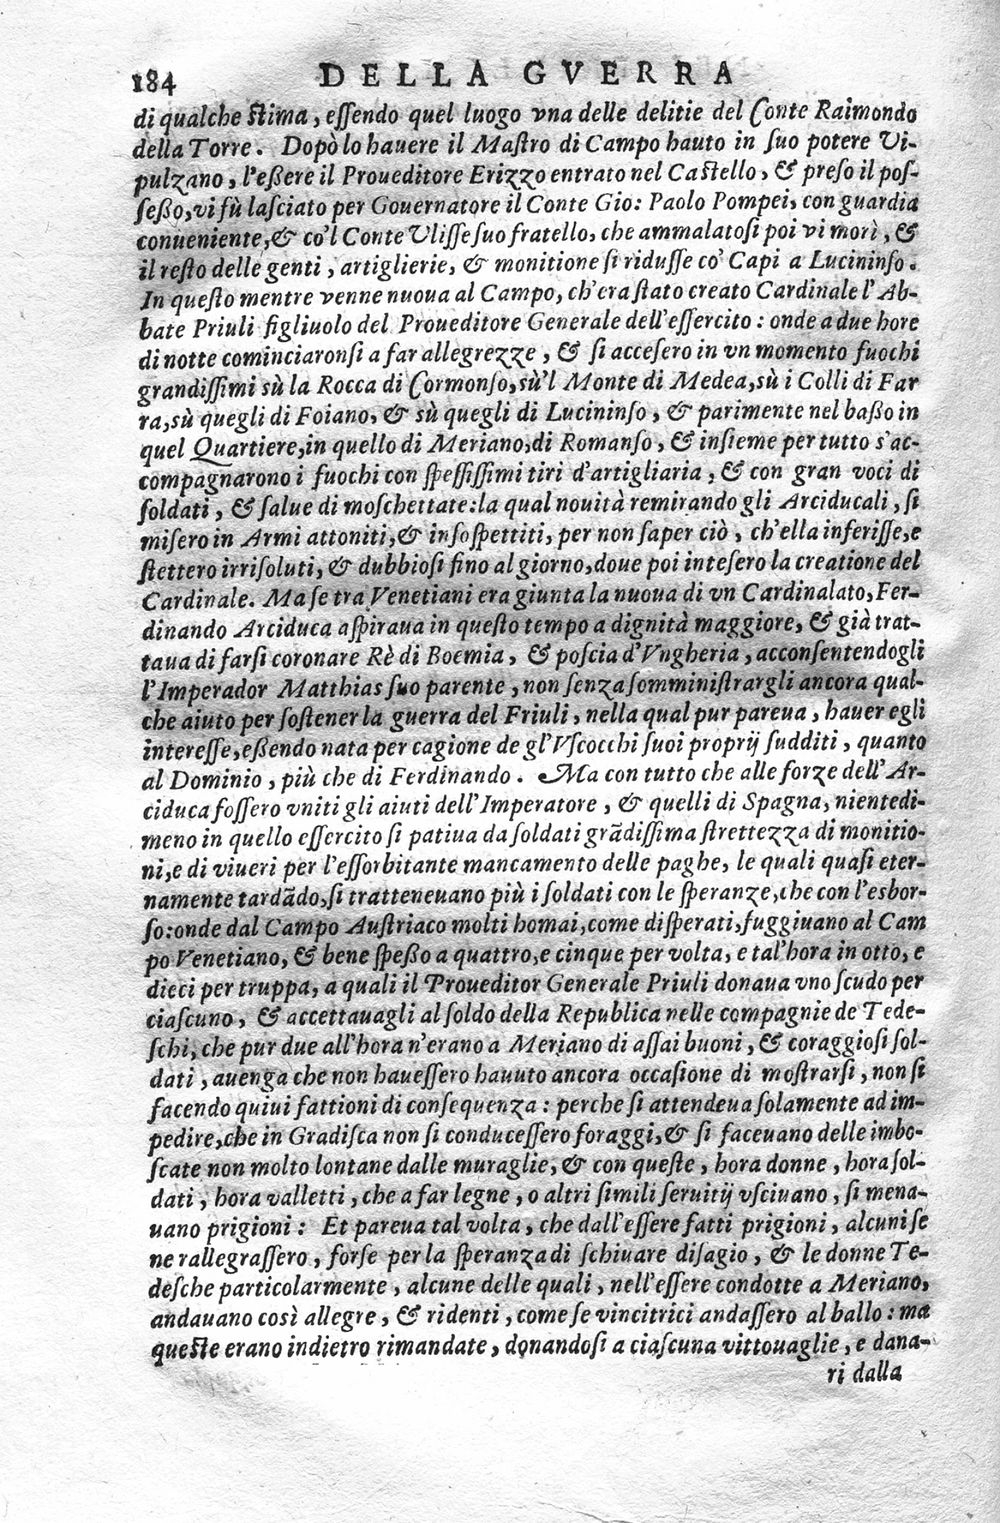 184 DELLA GVERRA
di qualche ſtima, eſſendo quel luogo vna delle delitie del Conte Raimondo
della Torre. Dopò lo hauere il Maſtro di Campo hauto in ſuo potere Vi-
pulzano, l'eßere il Proueditore Erizzo entrato nel Caſtello, & preſo il poſ-
ſeßo, vi fù laſciato per Gouernatore il Conte Gio: Paolo Pompei, con guardia
conueniente, & co'l Conte Vliſſe ſuo fratello, che ammalatoſi poi vi morì, &
il reſto delle genti, artiglierie, & monitione ſi riduſſe co' Capi a Lucininſo.
In queſto mentre venne nuoua al Campo, ch'era ſtato creato Cardinale l'Ab-
bate Priuli figliuolo del Proueditore Generale dell'eſſercito: onde a due hore
di notte cominciaronſi a far allegrezze, & ſi acceſero in vn momento fuochi
grandiſſimi sù la Rocca di Cormonſo, sù'l Monte di Medea, sù i Colli di Far
ra, sù quegli di Foiano, & sù quegli di Lucininſo, & parimente nel baßo in
quel Quartiere, in quello di Meriano, di Romanſo, & inſieme per tutto s'ac-
compagnarono i fuochi con ſpeſſiſſimi tiri d'artigliaria, & con gran voci di
ſoldati, & ſalue di moſchettate: la qual nouità remirando gli Arciducali, ſi
miſero in Armi attoniti, & inſoſpettiti, per non ſaper ciò, ch'ella inferiſſe, e
ſtettero irriſoluti, & dubbioſi fino al giorno, doue poi inteſero la creatione del
Cardinale. Ma ſe tra Venetiani era giunta la nuoua di vn Cardinalato, Fer-
dinando Arciduca aſpiraua in queſto tempo a dignità maggiore, & già trat-
taua di farſi coronare Rè di Boemia, & poſcia d'Vngheria, acconſentendogli
l'Imperador Matthias ſuo parente, non ſenza ſomminiſtrargli ancora qual-
che aiuto per ſoſtener la guerra del Friuli, nella qual pur pareua, hauer egli
intereſſe, eßendo nata per cagione de gl'Vſcocchi ſuoi proprij ſudditi, quanto
al Dominio, più che di Ferdinando. Ma con tutto che alle forze dell'Ar-
ciduca foſſero vniti gli aiuti dell'Imperatore, & quelli di Spagna, nientedi-
meno in quello eſſercito ſi patiua da ſoldati grãdiſſima ſtrettezza di monitio-
ni, e di viueri per l'eſſorbitante mancamento delle paghe, le quali quaſi eter-
namente tardãdo, ſi tratteneuano più i ſoldati con le ſperanze, che con l'esbor-
ſo: onde dal Campo Auſtriaco molti homai, come diſperati, fuggiuano al Cam
po Venetiano, & bene ſpeßo a quattro, e cinque per volta, e tal'hora in otto, e
dieci per truppa, a quali il Proueditor Generale Priuli donaua vno ſcudo per
ciaſcuno, & accettauagli al ſoldo della Republica nelle compagnie de Tede-
ſchi, che pur due all'hora n'erano a Meriano di aſſai buoni, & coraggioſi ſol-
dati, auenga che non haueſſero hauuto ancora occaſione di moſtrarſi, non ſi
facendo quiui fattioni di conſequenza: perche ſi attendeua ſolamente ad im-
pedire, che in Gradiſca non ſi conduceſſero foraggi, & ſi faceuano delle imbo-
ſcate non molto lontane dalle muraglie, & con queſte, hora donne, hora ſol-
dati, hora valletti, che a far legne, o altri ſimili ſeruitij vſciuano, ſi mena-
uano prigioni: Et pareua tal volta, che dall'eſſere fatti prigioni, alcuni ſe
ne rallegraſſero, forſe per la ſperanza di ſchiuare diſagio, & le donne Te-
deſche particolarmente, alcune delle quali, nell'eſſere condotte a Meriano,
andauano così allegre, & ridenti, come ſe vincitrici andaſſero al ballo: ma
queſte erano indietro rimandate, donandoſi a ciaſcuna vittouaglie, e dana-
ri dalla